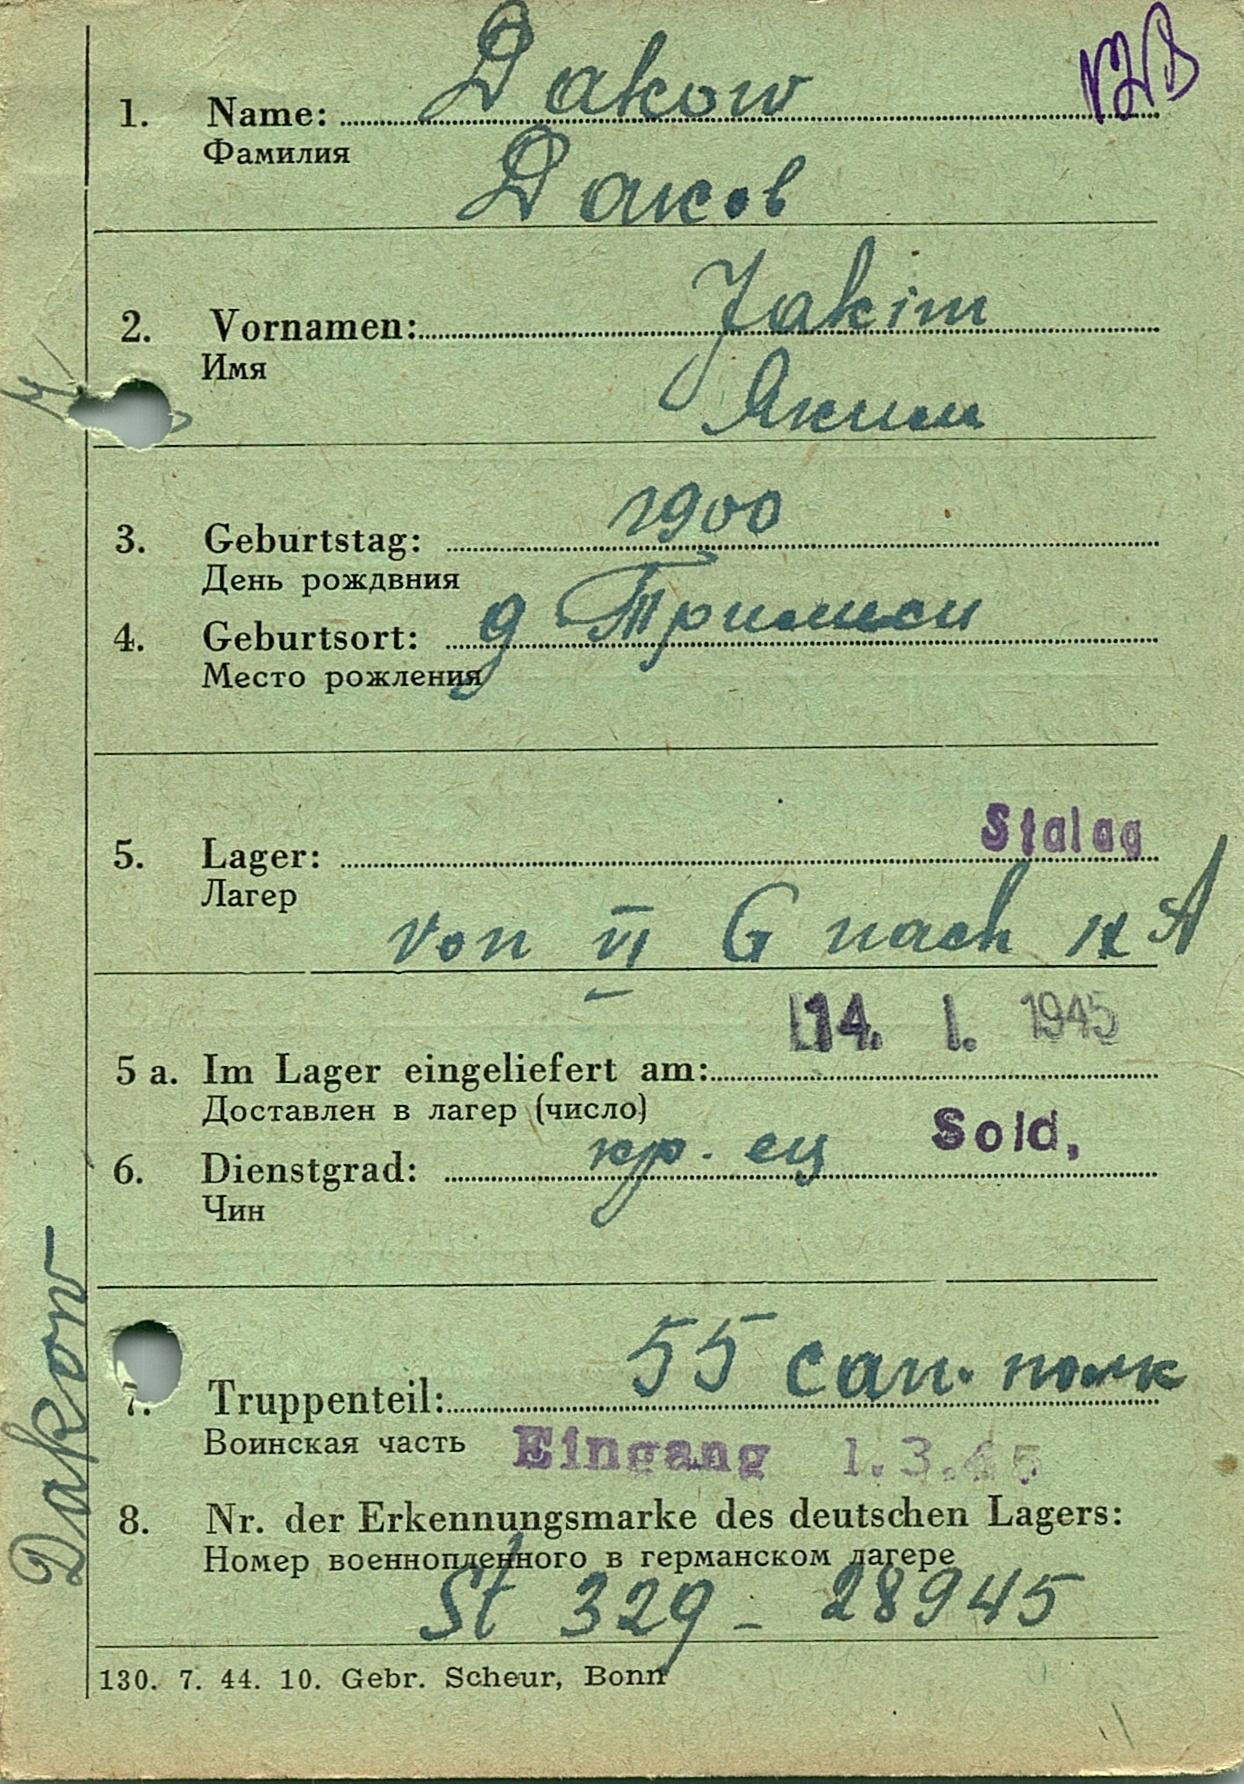 Dakow
1. Name:
Фамилия
Даков
Jakim
2. Vornamen:
Имя
Яким
1900
3. Geburtstag:
День рождвния
4. Geburtsort: д
Место рожления
Stalag
5. Lager:
Лагер
von VI G nach IX A
14. 1. 1945
5 a. Im Lager eingeliefert am:
Доставлен в лагер (число)
кр. ец Sold.
6. Dienstgrad:
Чин
55 сап. полк
7. Truppenteil:
Воинская часть Eingang 1.3.45
8. Nr. der Erkennungsmarke des deutschen Lagers:
Номер военнопленного в германском лагере
St 329 - 28945
130. 7. 44. 10. Gebr. Scheur, Bonn
Dakow